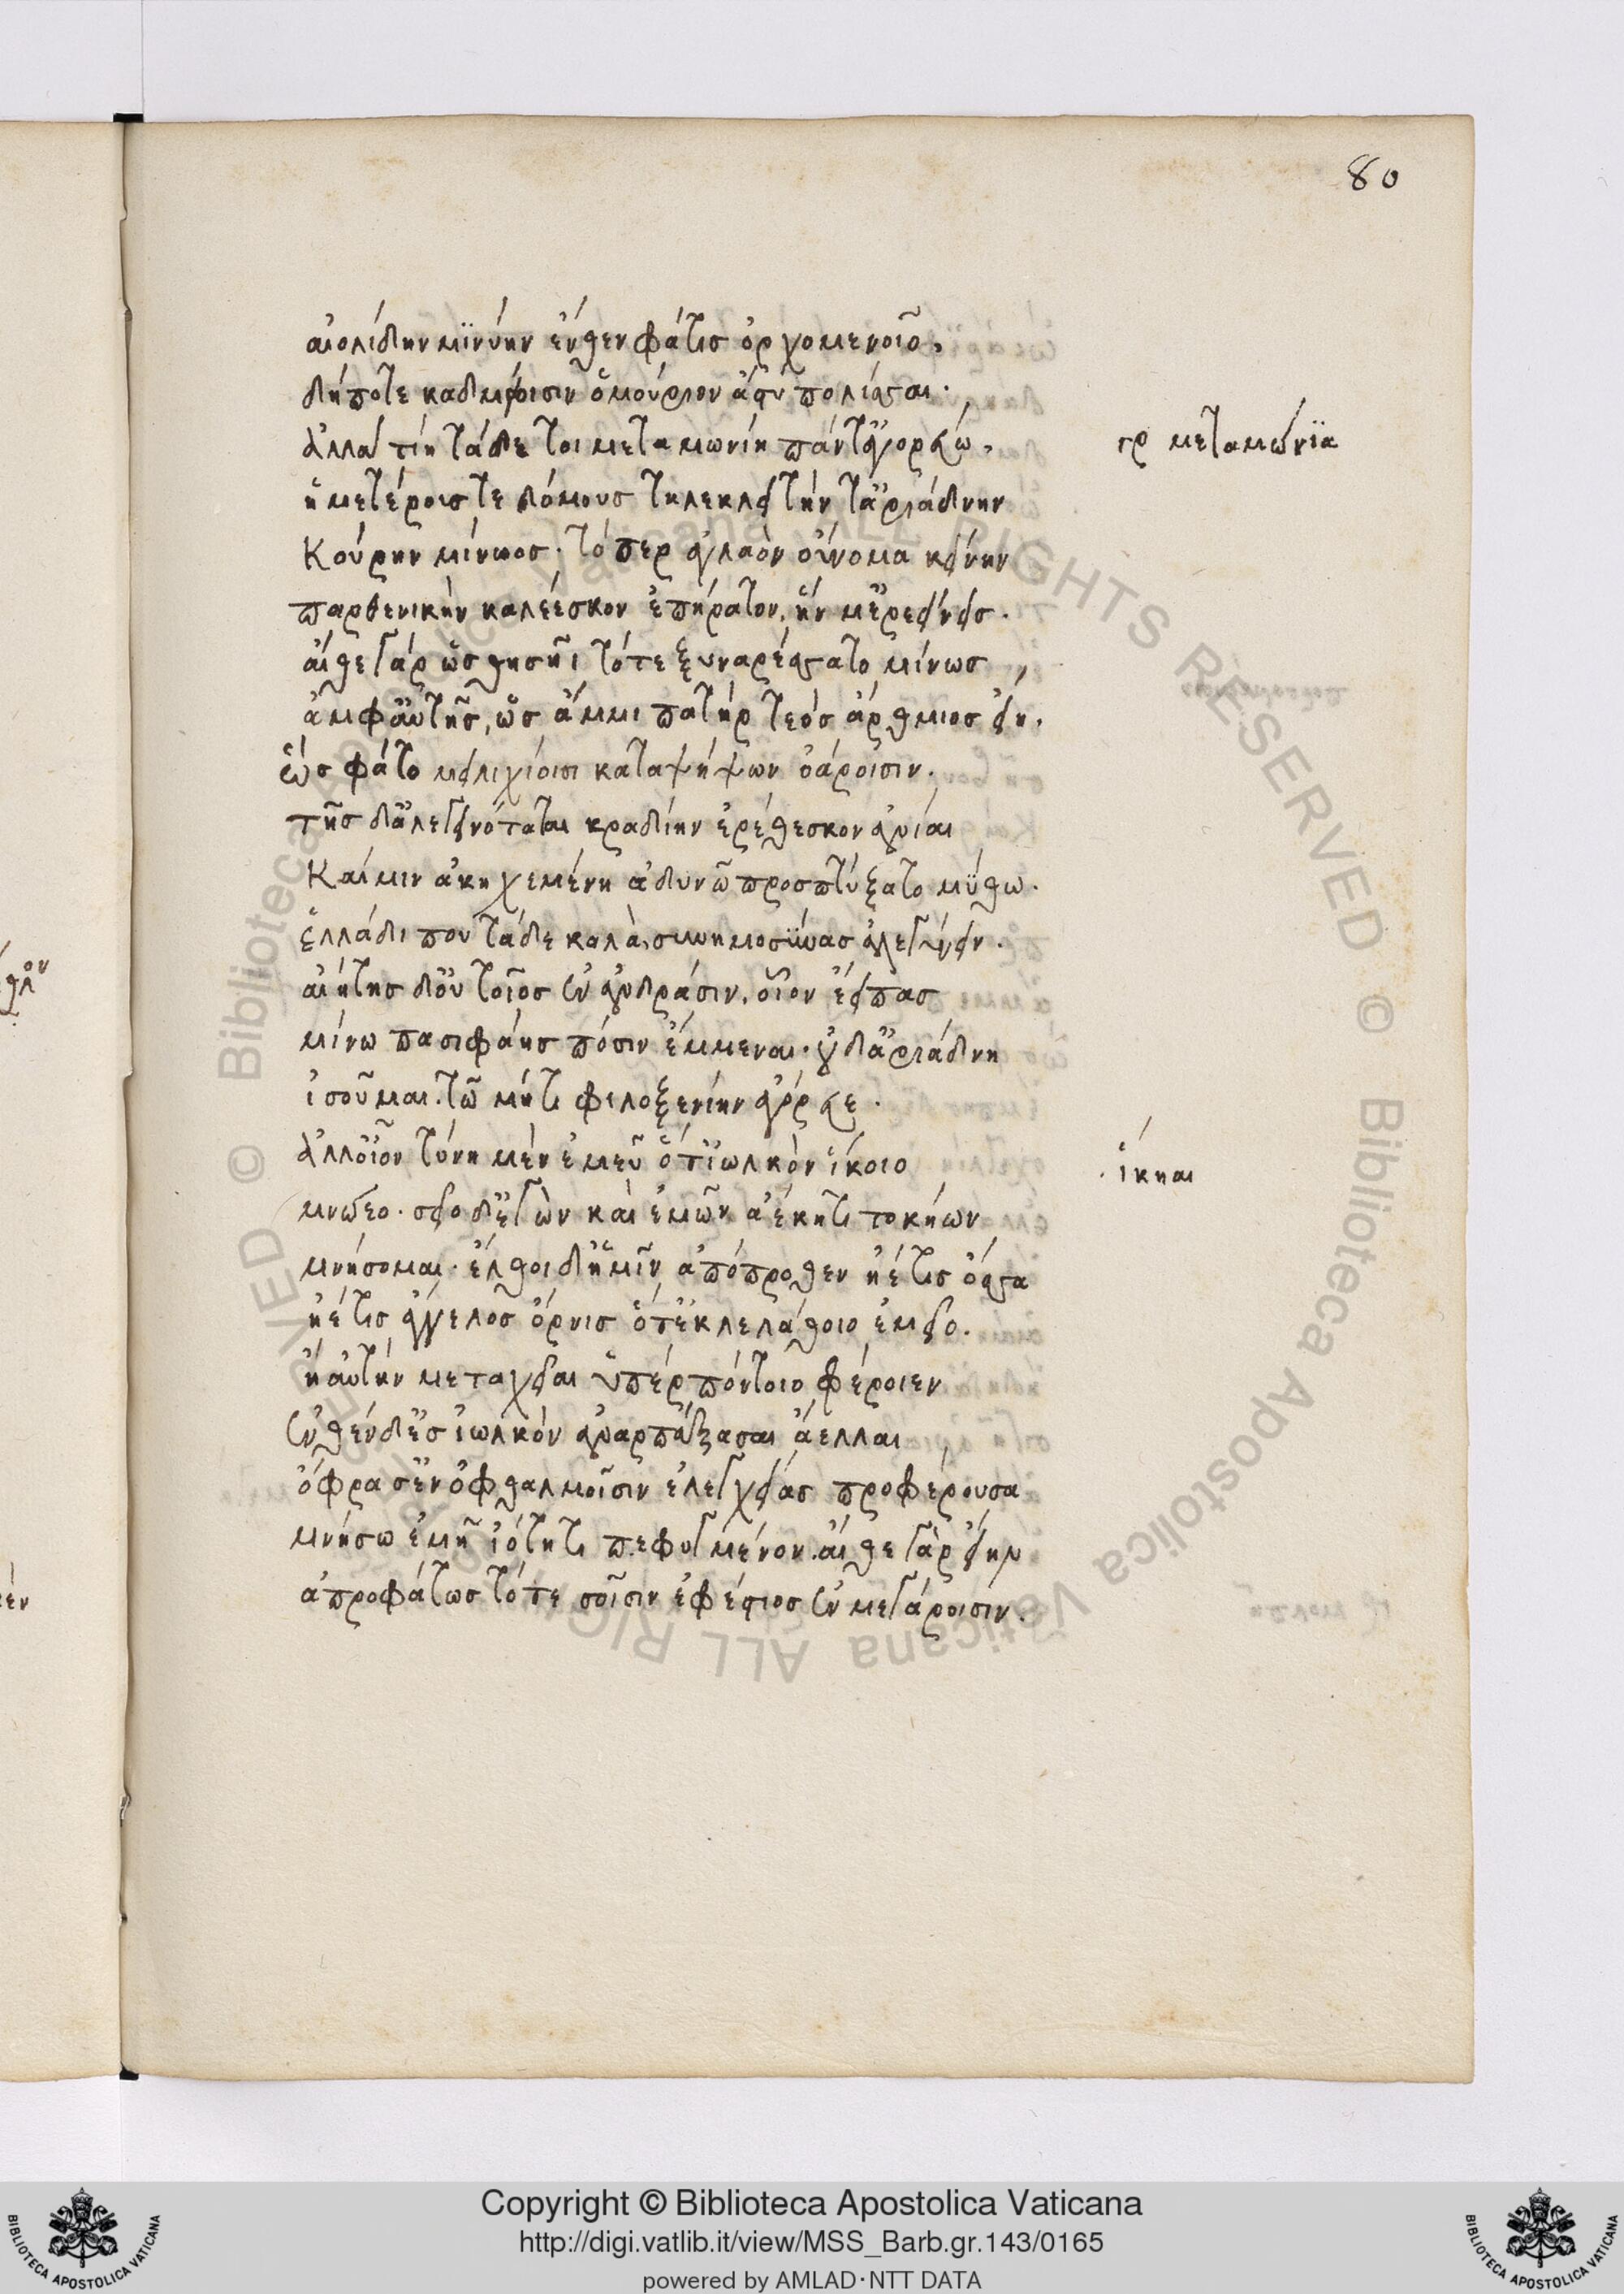 80
αἰολίδην μϊνύην ἔνθεν φάτισ ὀρχομενοῖο,
δήποτε καδμείοισιν ὁμούριον ἄστυ πολίσσαι.
ἀλλὰ τίη τάδε τοι μεταμωνίη πάντ᾽ ἀγορεύω,
γρ μεταμώνϊα
ἡμετέρουσ τε δόμουσ τηλεκλειτήν τ᾽ ἀριάδνην
κούρην μίνωοσ. τό περ ἀγλαὸν οὔνομα κείνην
παρθενικὴν καλέεσκον ἐπήρατον, ἥν μ᾽ ἐρεείνεισ.
αἴθε γάρ ὡσ θησῆϊ τότε ξυναρέσσατο μίνωσ
ἀμφ᾽ αὐτῆσ, ὣσ ἄμμι πατήρ τεόσ ἄρθμιοσ εἴη.
ὣσ φάτο μειλιχίοισι καταψήχων ὀάροισιν.
τῆσ δ᾽ ἀλεγεινόταται κραδίην ἐρέθεσκον ἀνίαι
καί μιν ἀκηχεμένη ἀδινῶ προσπτύξατο μύθω.
ἑλλάδι που τάδε καλὰ, συνημοσύνασ ἀλεγύνειν.
αἰήτησ δ᾽ οὐ τοῖοσ ἐν ἀνδράσιν, οἷον ἔειπασ
μίνω πασιφάησ πόσιν ἔμμεναι. οὐδ᾽ ἀριάδνη
ἰσοῦμαι. τῶ μήτι φιλοξενίην ἀγόρευε.
ἀλλ᾽ οἶον τύνη μὲν ἐμεῦ ὅτ᾽ ἰωλκὸν ἵκοιο
ἵκηαι
μνώεο. σεῖο δ᾽ ἐγὼν καὶ ἐμῶν ἀέκητι τοκήων
μνήσομαι. ἔλθοι δ᾽ ἡμῖν ἀπόπροθεν ἠέ τισ ὄσσα
ἠέ τισ ἄγγελοσ ὄρνισ ὅτ᾽ ἐκλελάθοιο ἐμεῖο.
ἢ αὐτήν με ταχεῖαι ὑπέρ πόντοιο φέροιεν
ἐνθένδ᾽ ἐσ ἰωλκὸν ἀναρπάξασαι ἄελλαι
ὄφρα σ᾽ ἐν ὀφθαλμοῖσιν ἐλεγχείασ προφέρουσα
μνήσω ἐμῆ ἰότητι πεφυγμένον. αἴθε γὰρ εἴην
ἀπροφάτωσ τότε σοῖσιν ἐφέστιοσ ἐν μεγάροισιν.
Copyright © Biblioteca Apostolica Vaticana
http://digi.vatlib.it/view/MSS_Barb.gr.143/0165
powered by AMLAD·NTT DATA